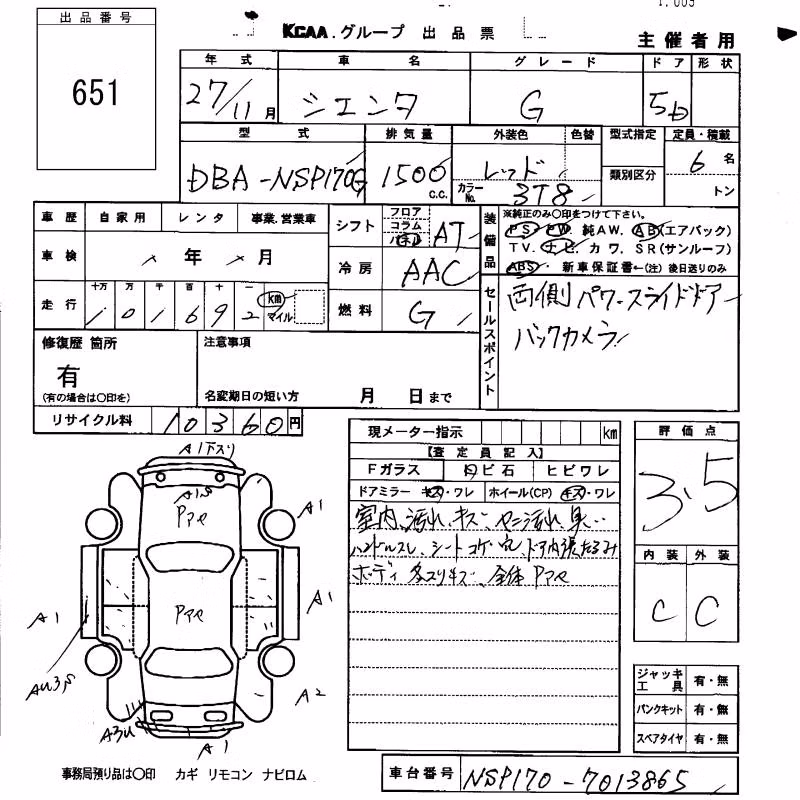 出品番号
651
KCAA.グループ 出品票
主催者用
年式 車名 グレード ドア 形状
27/11月 シエンタ G 5D
型式 排気量 外装色 色替 型式指定 定員・積載
DBA-NSP170G 1500 c.c. レッド 類別区分 6名
カラーNo. 3T8 トン
車歴 自家用 レンタ 事業.営業車
車検 年 月
走行 十万 万 千 百 十 一
1 0 1 6 9 2 km マイル
シフト フロア コラム パネル AT
冷房 AAC
燃料 G
装備品
※純正のみ○印をつけて下さい。
PS PW 純AW. AB(エアバック)
TV. ナビ カワ. SR(サンルーフ)
ABS 新車保証書←(注) 後日送りのみ
セールスポイント
両側パワースライドドアー
バックカメラ
修復歴 箇所
有
(有の場合は○印を)
注意事項
名変期日の短い方 月 日まで
リサイクル料 10360円
現メーター指示 km
【査定員記入】
Fガラス 飛ビ石 ヒビワレ
ドアミラー キズ・ワレ ホイール(CP) キズ・ワレ
室内、汚れ、キズ、ヤニ汚れ臭
ハンドルスレ、シートコゲ穴、ドア内張たるみ
ボディ各スリキズ、全体Pアe
評価点
3.5
内装 外装
C C
ジャッキ工具 有・無
パンクキット 有・無
スペアタイヤ 有・無
A1下スリ
A1S
Pアe
A1
Pアe
A1
A1
AU3,S
A2
A3U
A1
事務局預り品は○印 カギ リモコン ナビロム
車台番号 NSP170-7013865